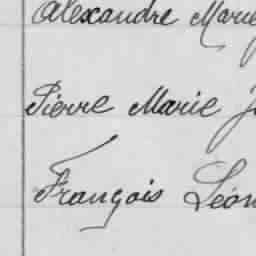 Alexandre Marie
Pierre Marie J
François Léon